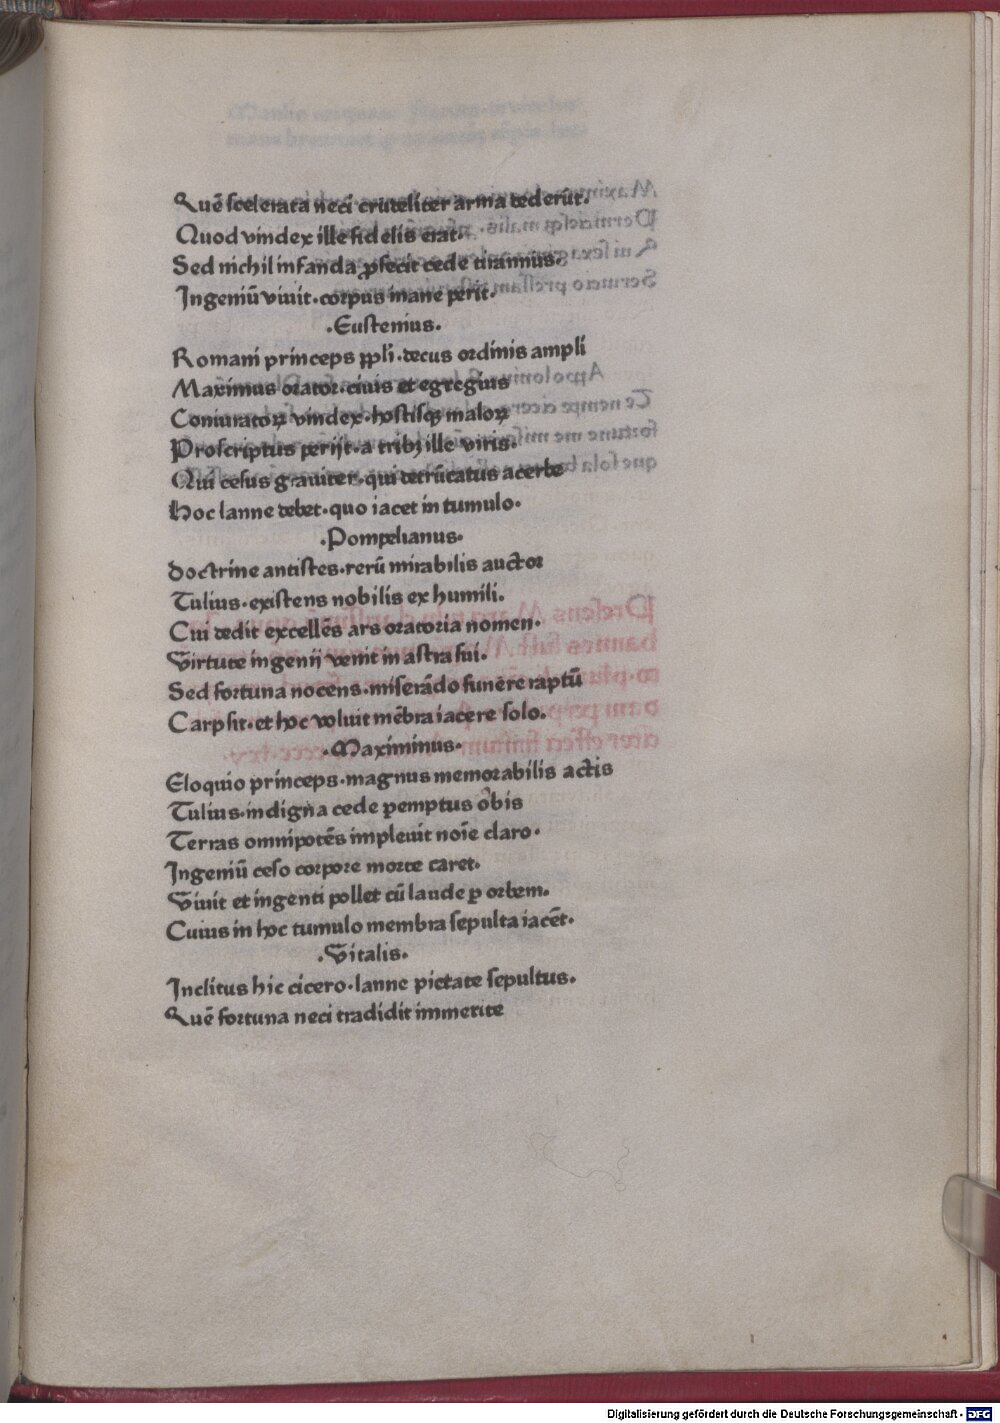 Quē scelerata neci crudeliter arma dederūt.
Quod vindex ille fidelis erat.
Sed nichil infanda ꝓfecit cede tirannus.
Ingeniū viuit. corpus inane perit.
.Eustenius.
Romani princeps ppli. decus ordinis ampli
Maximus orator. ciuis et egregius
Coniuratoꝝ vindex. hostisqꝫ maloꝝ
Proscriptus perijt. a tribꝫ ille viris.
Qui cesus grauiter. qui detrūcatus acerbe
Hoc lanne debet. quo iacet in tumulo.
.Pompelianus.
doctrine antistes. rerū mirabilis auctor
Tulius. existens nobilis ex humili.
Cui dedit excellēs ars oratoria nomen.
Virtute ingenij venit in astra sui.
Sed fortuna nocens. miserādo funere raptū
Carpsit. et hoc voluit mēbra iacere solo.
.Maximinus.
Eloquio princeps. magnus memorabilis actis
Tulius. indigna cede ꝑemptus obis
Terras omnipotēs impleuit noīe claro.
Ingeniū ceso corpore morte caret.
Viuit et ingenti pollet cū laude ꝑ orbem.
Cuius in hoc tumulo membra sepulta iacēt.
.Vitalis.
Inclitus hic cicero. lanne pietate sepultus.
Quē fortuna neci tradidit immerite
Digitalisierung gefördert durch die Deutsche Forschungsgemeinschaft - DFG